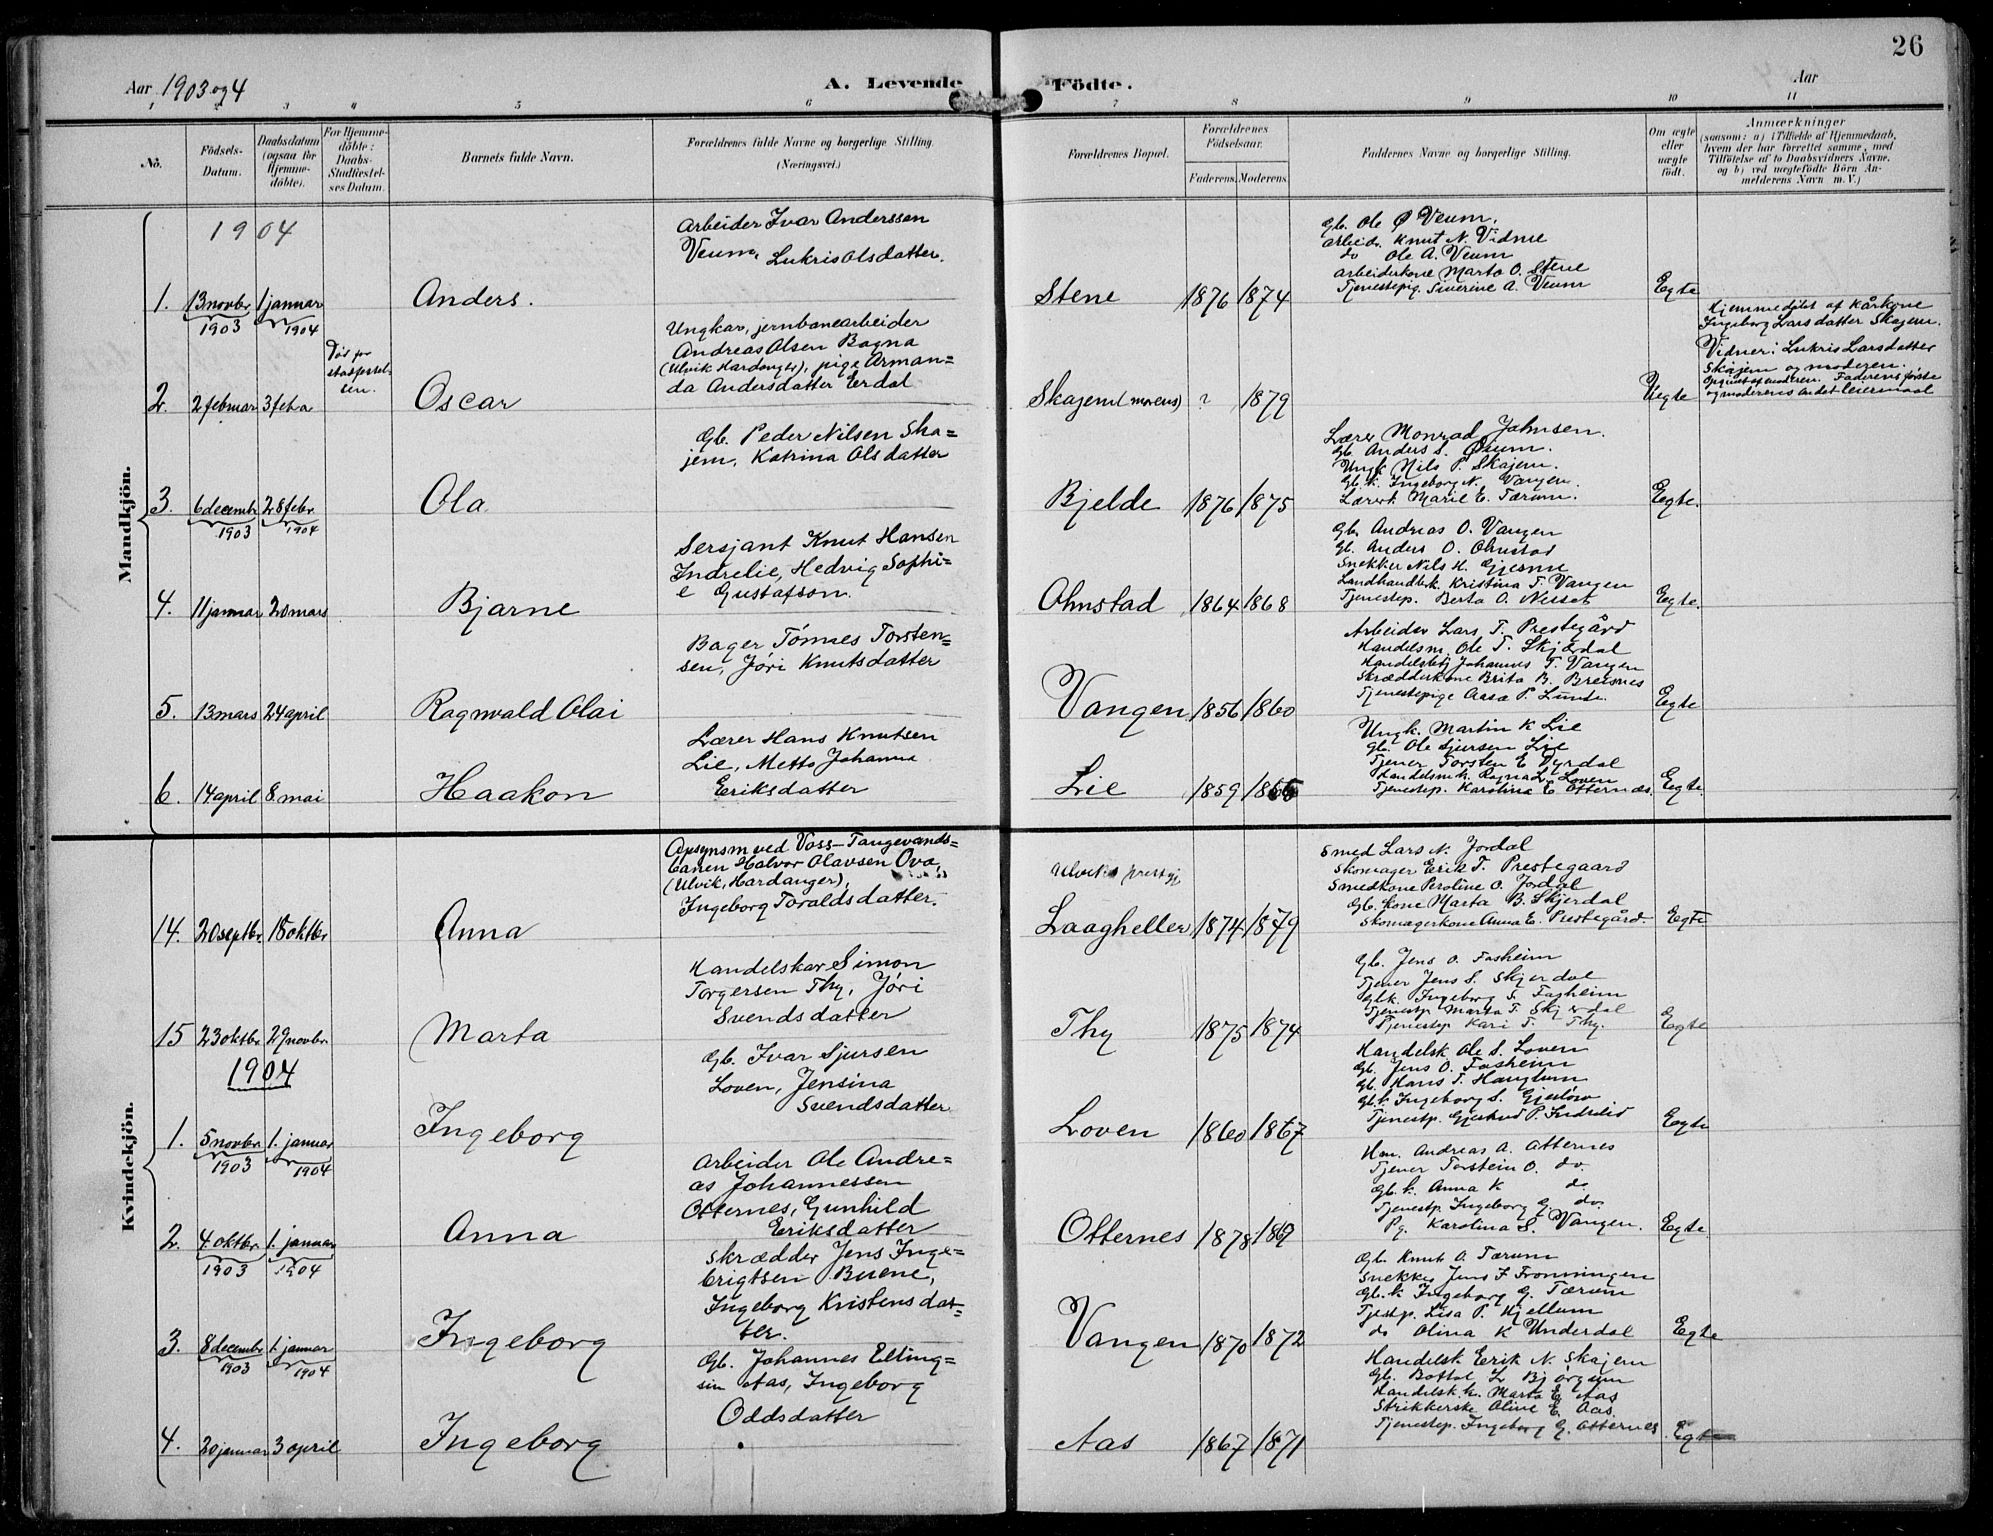 26
Aar 1903 og 4
A. Levende
Födte.
Aar
1 2 3 4 5 6 7 8 9 10 11
No.
Födsels-
Datum.
Daabsdatum
(ogsaa for
Hjemme-
döbte).
For Hjemme-
döbte:
Daabs-
Stadfæstel-
ses Datum.
Barnets fulde Navn.
Forældrenes fulde Navne og borgerlige Stilling.
(Næringsvei.)
Forældrenes Bopæl.
Forældrenes
Födselsaar.
Faderens. Moderens.
Faddernes Navne og borgerlige Stilling.
Om ægte
eller
uægte
födt.
Anmærkninger
(saasom: a) i Tilfælde af Hjemmedaab,
hvem der har forrettet samme, med
Tilföielse af to Daabsvidners Navne.
og b) ved uægtefödte Börn An-
melderens Navn m. V.)
Mandkjön.
1904
1. 13 novbr 1903
1 januar 1904
Anders.
Arbeider Ivar Anderssen
Veum, Lukris Olsdatter.
Stene
1876 1874
Gb. Ole Ø Veum.
Arbeid. Knut N. Vidme
do Ole A. Veum
Arbeiderkone Marta O. Stene
Tjenestepig. Siverine A. Veum
Egte
2. 2 februar 3 feb.a
Död for
stadfestel-
sen.
Oscar
Ungkar, jernbanearbeider
Andreas Olsen Bagna
(Ulvik Hardanger), pige Arman=
da Andersdatter Erdal
Skajem (morens)
? 1879
Uegte
Hjemmedöbt af kårkone
Ingeborg Larsdatter Skajem.
Vidner: Lukris Larsdatter
Skajem og moderen.
Opgivet af moderen. Faderens første
og moderens andet leiermaal
3. 6 decembr 1903
28 febr. 1904
Ola
Gb. Peder Nilsen Ska=
jem, Katrina Olsdatter
Bjelde
1876 1875
Lærer Monrad Johnsen.
Gb. Anders S. Øvum.
Ungk Nils P. Skajem.
Gb. k. Ingeborg N. Vangen
Lærerk. Marie E. Tærum.
Egte.
4. 11 januar 20 mars
Bjarne
Sersjant Knut Hansen
Indrelie, Hedvig Sophi=
e Gustafson.
Ohnstad
1864 1868
Gb. Andreas O. Vangen
Gb. Anders O. Ohnstad
Snekker Nils H. Gjesme
Landhandlerk. Kristina T. Vangen
Tjenestep. Berta O. Nesset
Egte.
5. 13 mars 24 april
Ragnvald Olai
Bager Tómas Torsten=
sen, Jóri Knutsdatter
Vangen
1856 1860
Arbeider Lars T. Prestegård
Handelsm. Ole T. Skjærdal
Handelsbetj Johannes T. Vangen
Skrædderkone Brita B. Breisnes
Tjenestepige Aasa P. Lunde.
Egte
6. 14 april 8 mai
Haakon
Lærer Hans Knutsen
Lie, Metta Johanna
Eriksdatter
Lie
1859
Ungk. Martin K Lie
Gb. Ole Sjursen Lie
Tjener Torsten E Fyrdal
Handelsmk. Ragna L. Loven
Tjenestep. Karolina E Otternæs.
Egte.
Kvindekjön.
14. 20 septbr. 18 oktbr
Anna
Opsynsm ved Voss-Taugevands=
banen Halvor Olavsen Ova,
(Ulvik, Hardanger),
Ingeborg Toraldsdatter.
Ulviks prestgj
Laagheller
1874 1879
Smed Lars N. Jordal
Skomager Erik T. Prestegaard
Smedkone Peroline O. Jordal
Gb. kone Marta B. Skjerdal
Skomagerkone Anna E. Prestegård.
Egte
15 23 oktbr. 29 novbr.
Marta
Handelskar Simon
Torgersen Thy, Jóri
Svendsdatter
Thy
1875 1874
Gb. Jens O. Fasheim
Tjener Jens S. Skjerdal
Gbk. Ingeborg T. Fasheim
Tjenestep Marta T. Skjerdal
Tjenestep Kari T. Thy.
Egte
1904
1. 5 novbr. 1903
1. januar 1904
Ingeborg
Gb. Ivar Sjursen
Loven, Jensina
Svendsdatter
Loven
1860 1867
Handelsk Ole S. Loven
Gb. Jens O. Fasheim
Gb. Hans T. Haugtum
Gb. k. Ingeborg S. Gjerløw
Tjenestp. Gjertrud P. Indrelid
Egte
2. 4. oktbr. 1903
1. januar 1904
Anna
Arbeider Ole Andre=
as Johannessen
Otternes, Gunhild
Eriksdatter
Otternes
1878
Hm. Andreas A. Otternes
Tjener Torstein O. do.
Gb. k. Anna K do.
Tjenestp. Ingeborg G. do.
Pg. Karolina S. Vangen.
Egte.
3. 8 decembr 1903
1. januar 1904
Ingeborg
Skrædder Jens Inge=
brigtsen Buene,
Ingeborg Kristensdat=
ter.
Vangen
1870 1872
Gb Knut O. Tærum
Snekker Jens F Fronningen
Gb. k Ingeborg G. Tærum
Tjestep. Lisa P. Hjellum
do Olina K Underdal
Egte
4. 20 januar 3 april
Ingeborg
Gb. Johannes Elling=
sen Aas, Ingeborg
Oddsdatter
Aas
1867 1871
Handelsk Erik N. Skajem
Gb. Bottol L Bjørgum
Handelsk. k. Marta E Aas
Strikkerske Oline E. Aas,
Tjenestep. Ingeborg G. Otternes.
Egte